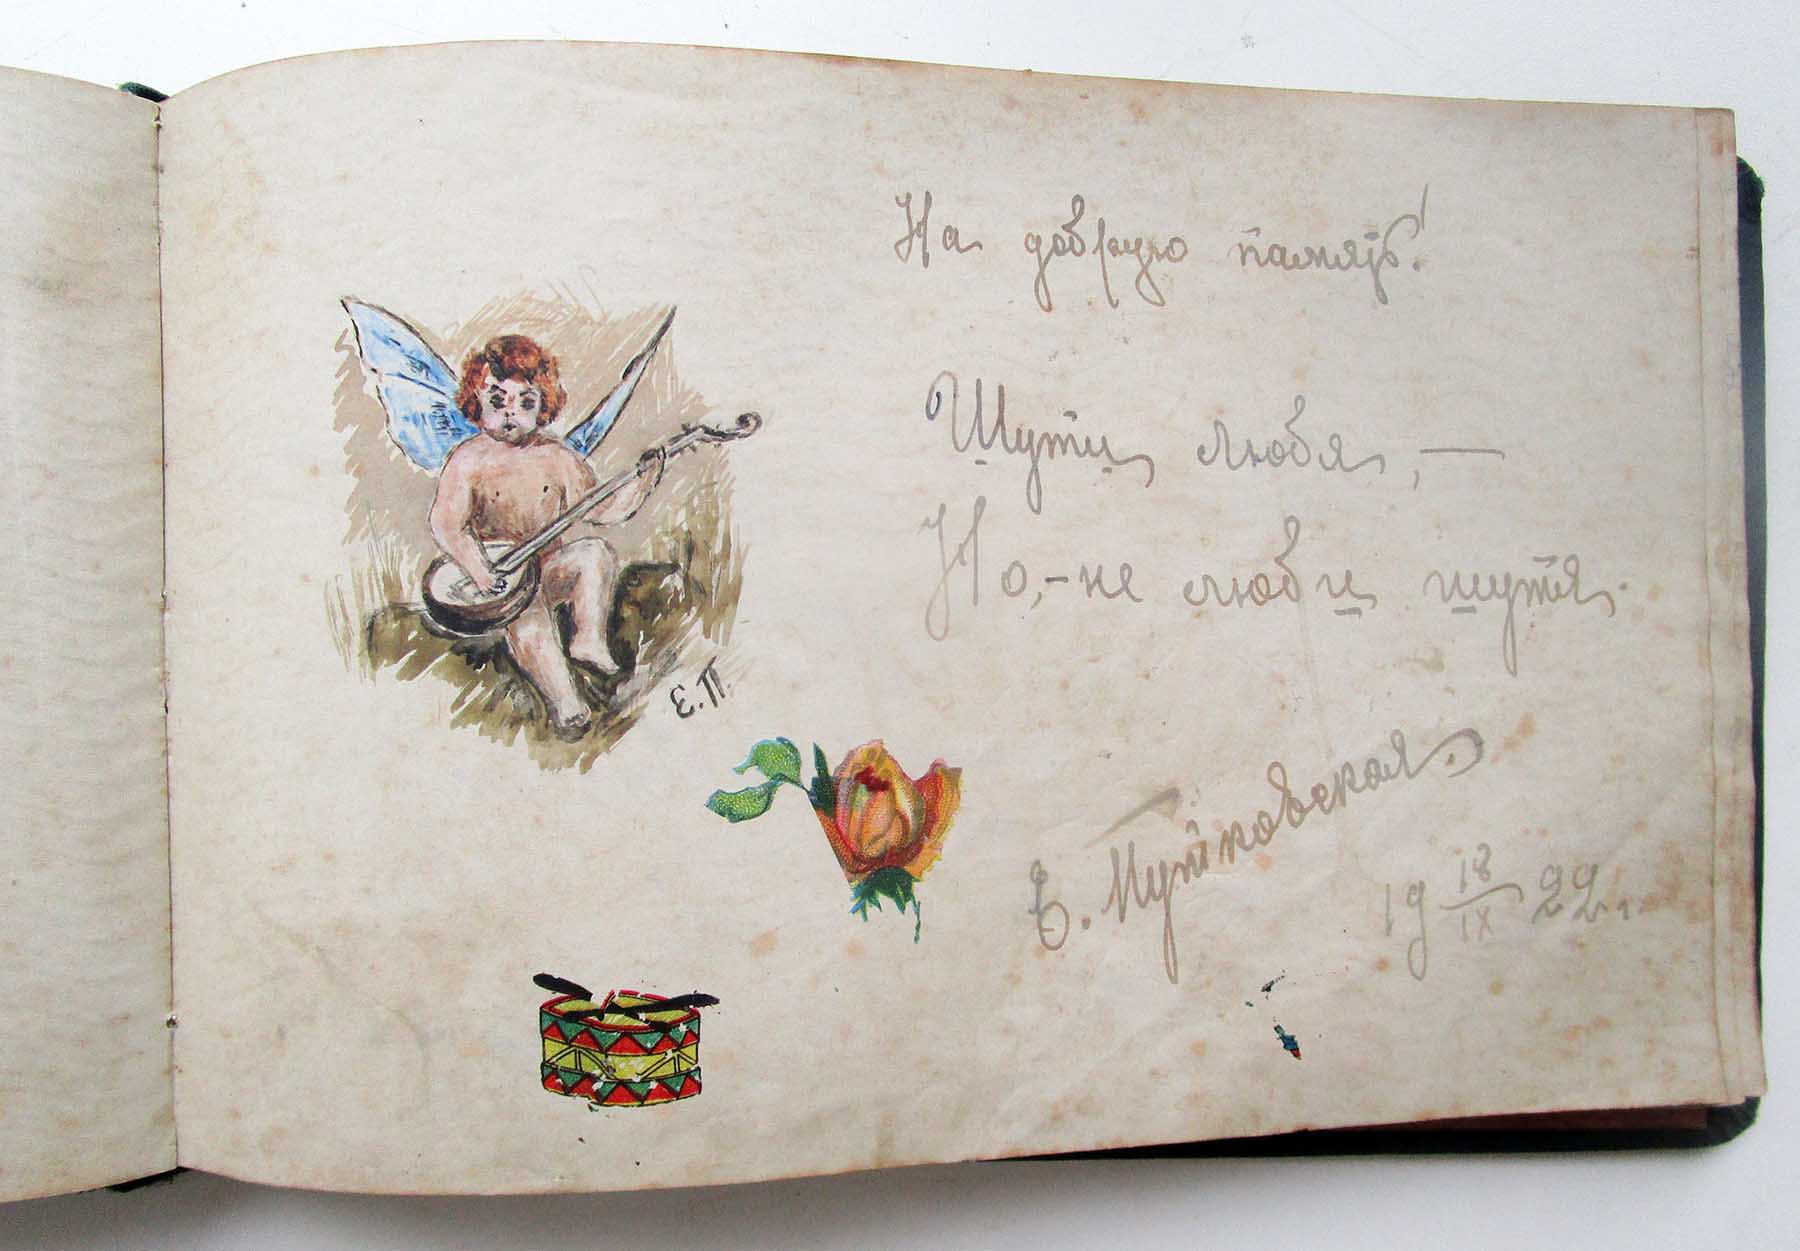 На добрую память!
Шути любя, —
Но, - не люби шутя.
Е. П.
Е. Путковская.
19 18/IX 22 г.